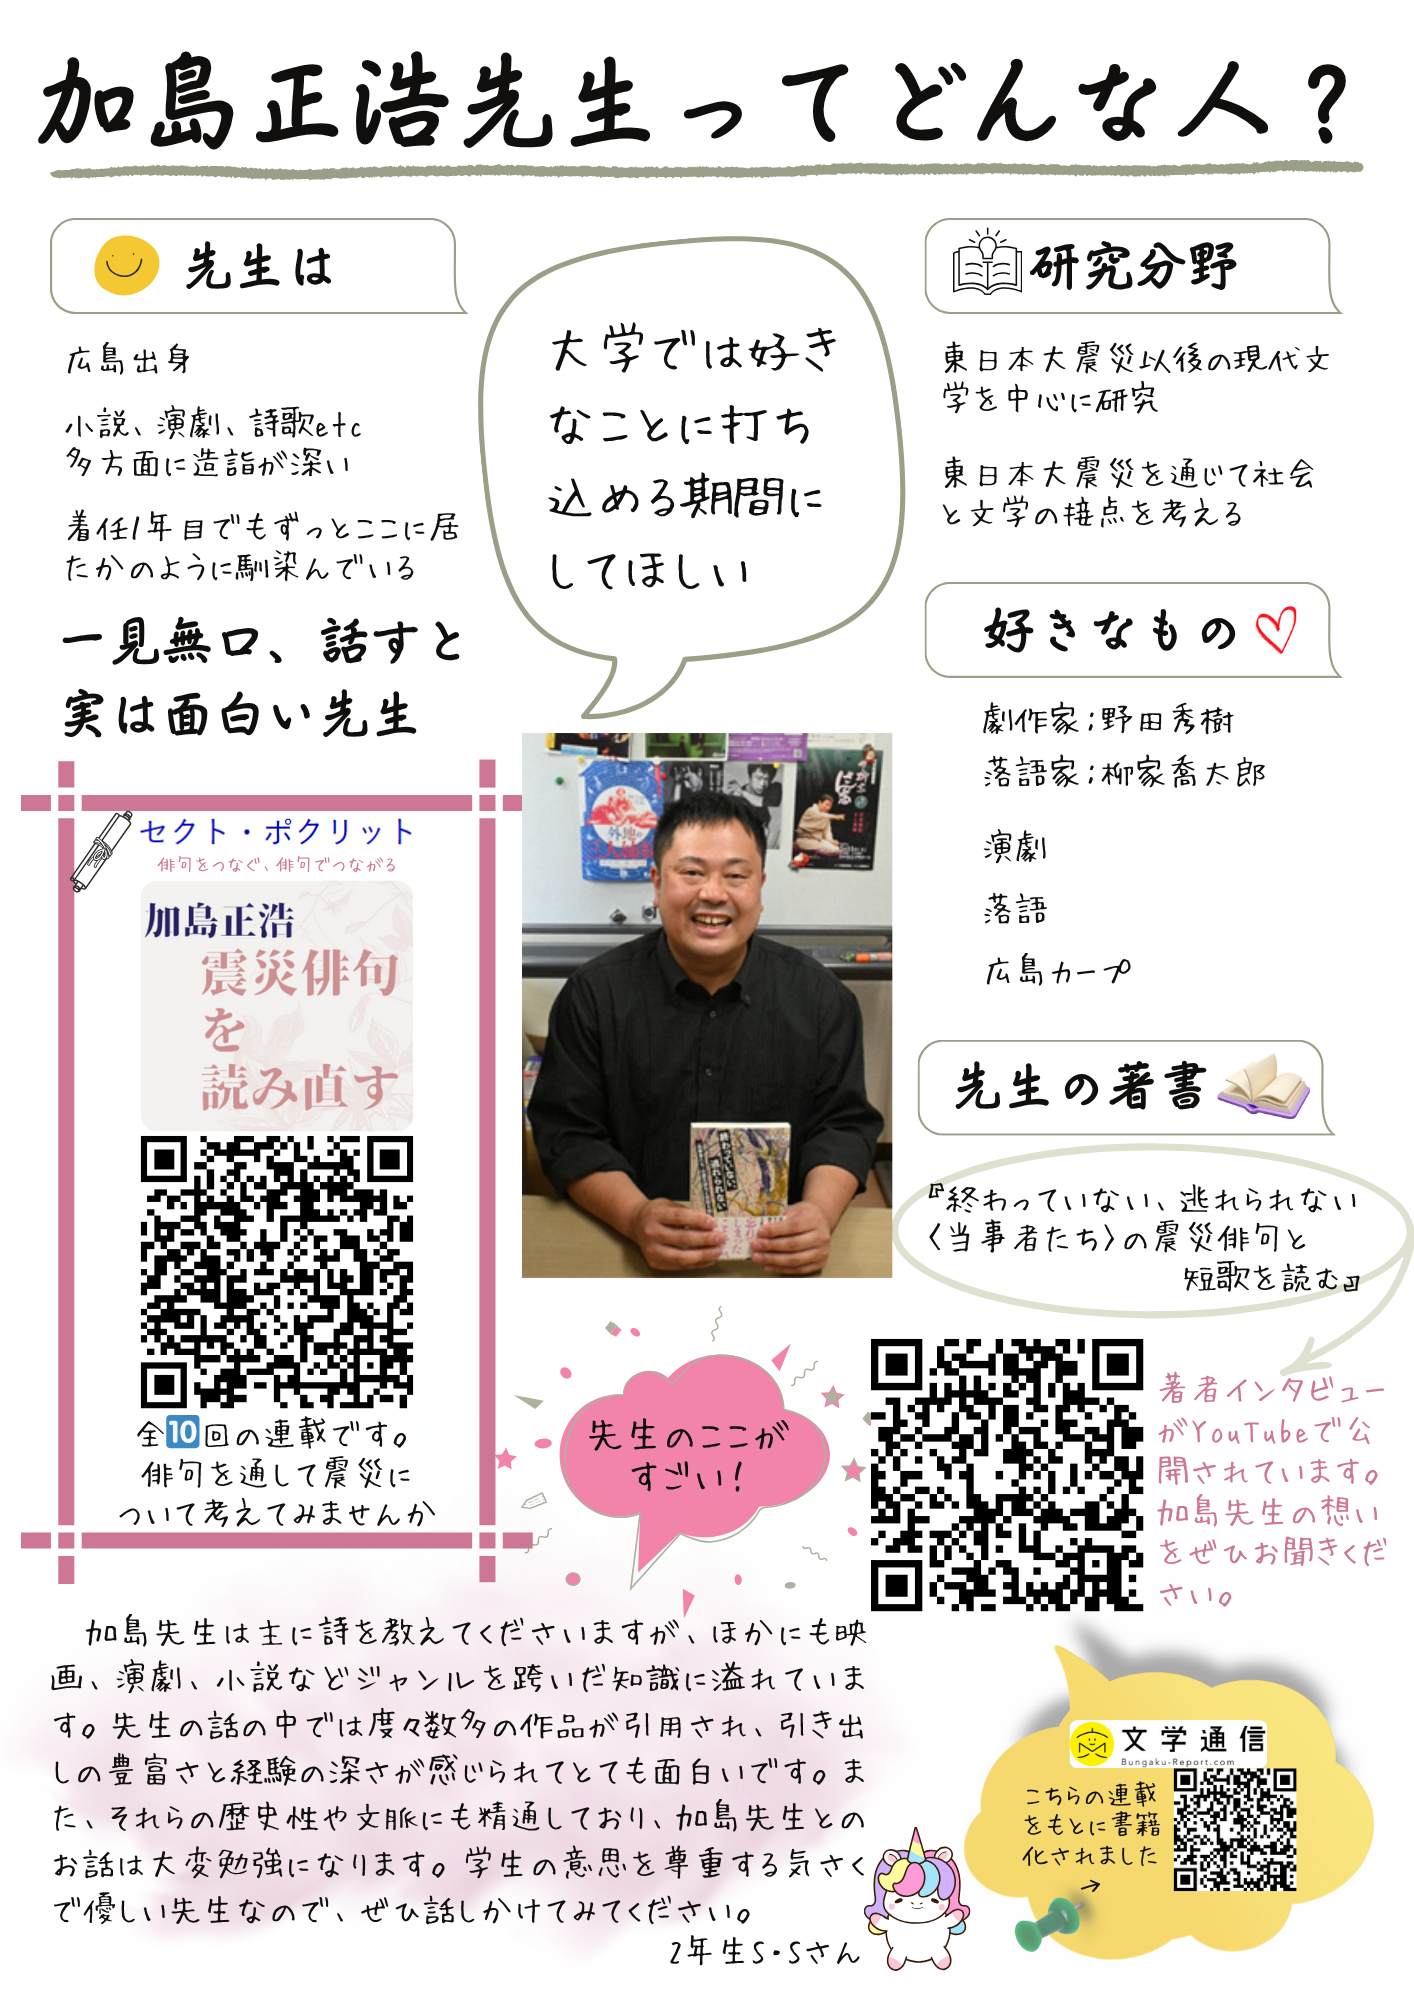 加島正浩先生ってどんな人？
先生は
広島出身
小説、演劇、詩歌etc
多方面に造詣が深い
着任1年目でもずっとここに居
たかのように馴染んでいる
一見無口、話すと
実は面白い先生
大学では好き
なことに打ち
込める期間に
してほしい
研究分野
東日本大震災以後の現代文
学を中心に研究
東日本大震災を通じて社会
と文学の接点を考える
好きなもの
劇作家；野田秀樹
落語家；柳家喬太郎
演劇
落語
広島カープ
セクト・ポクリット
俳句をつなぐ、俳句でつながる
加島正浩
震災俳句
を
読み直す
全10回の連載です。
俳句を通して震災に
ついて考えてみませんか
外地の
三人姉妹
終わっていない、
逃れられない
先生の著書
『終わっていない、逃れられない
〈当事者たち〉の震災俳句と
短歌を読む』
著者インタビュー
がYouTubeで公
開されています。
加島先生の想い
をぜひお聞きくだ
さい。
先生のここが
すごい！
加島先生は主に詩を教えてくださいますが、ほかにも映
画、演劇、小説などジャンルを跨いだ知識に溢れていま
す。先生の話の中では度々数多の作品が引用され、引き出
しの豊富さと経験の深さが感じられてとても面白いです。ま
た、それらの歴史性や文脈にも精通しており、加島先生との
お話は大変勉強になります。学生の意思を尊重する気さく
で優しい先生なので、ぜひ話しかけてみてください。
2年生S・Sさん
文学通信
Bungaku-Report.com
こちらの連載
をもとに書籍
化されました
→